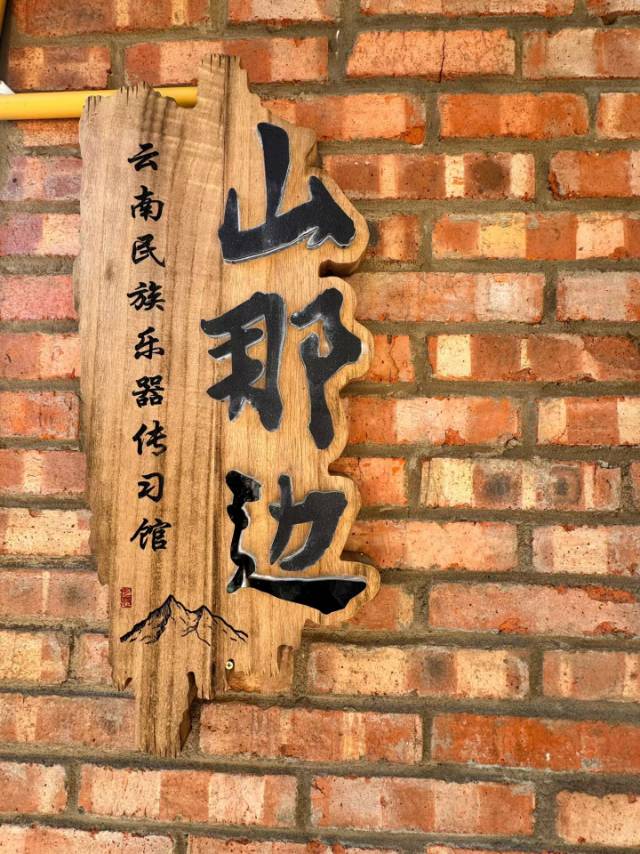 山那边
云南民族乐器传习馆